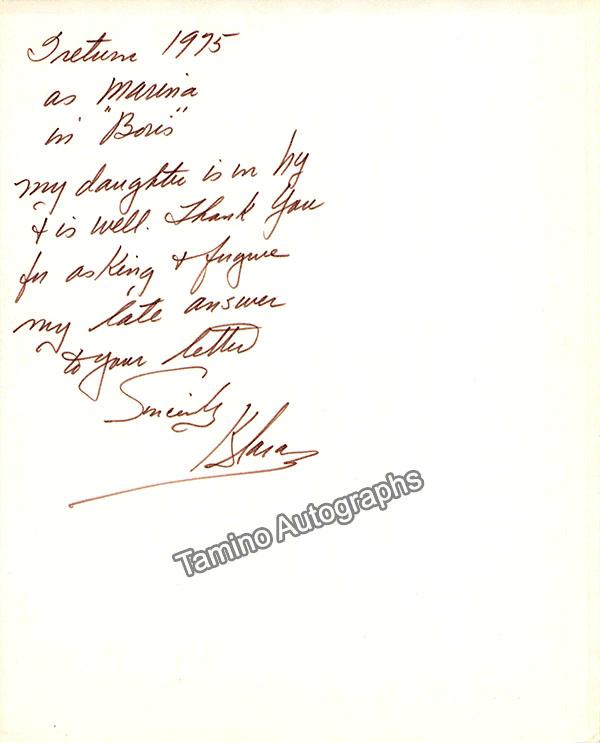 I return 1975
as Marina
in "Boris"
my daughter is in NY
& is well. Thank You
for asking & forgive
my late answer
to your letter
Sincerely
Klara
Tamino Autographs